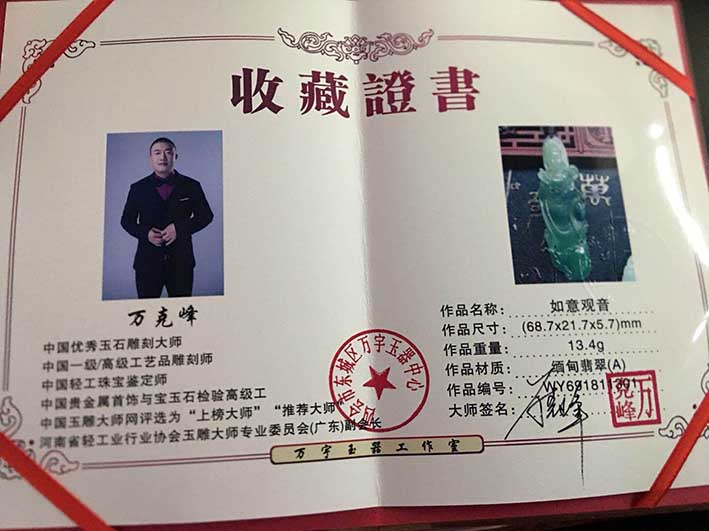 收藏證書
万克峰
中国优秀玉石雕刻大师
中国一级/高级工艺品雕刻师
中国轻工珠宝鉴定师
中国贵金属首饰与宝玉石检验高级工
中国玉雕大师网评选为“上榜大师”“推荐大师”
·河南省轻工业行业协会玉雕大师专业委员会(广东)副会长
市东城区万宇玉器中心
作品名称: 如意观音
作品尺寸: (68.7x21.7x5.7)mm
作品重量: 13.4g
作品材质: 缅甸翡翠(A)
作品编号: WY691811301
大师签名:
万克峰
万宇玉器工作室